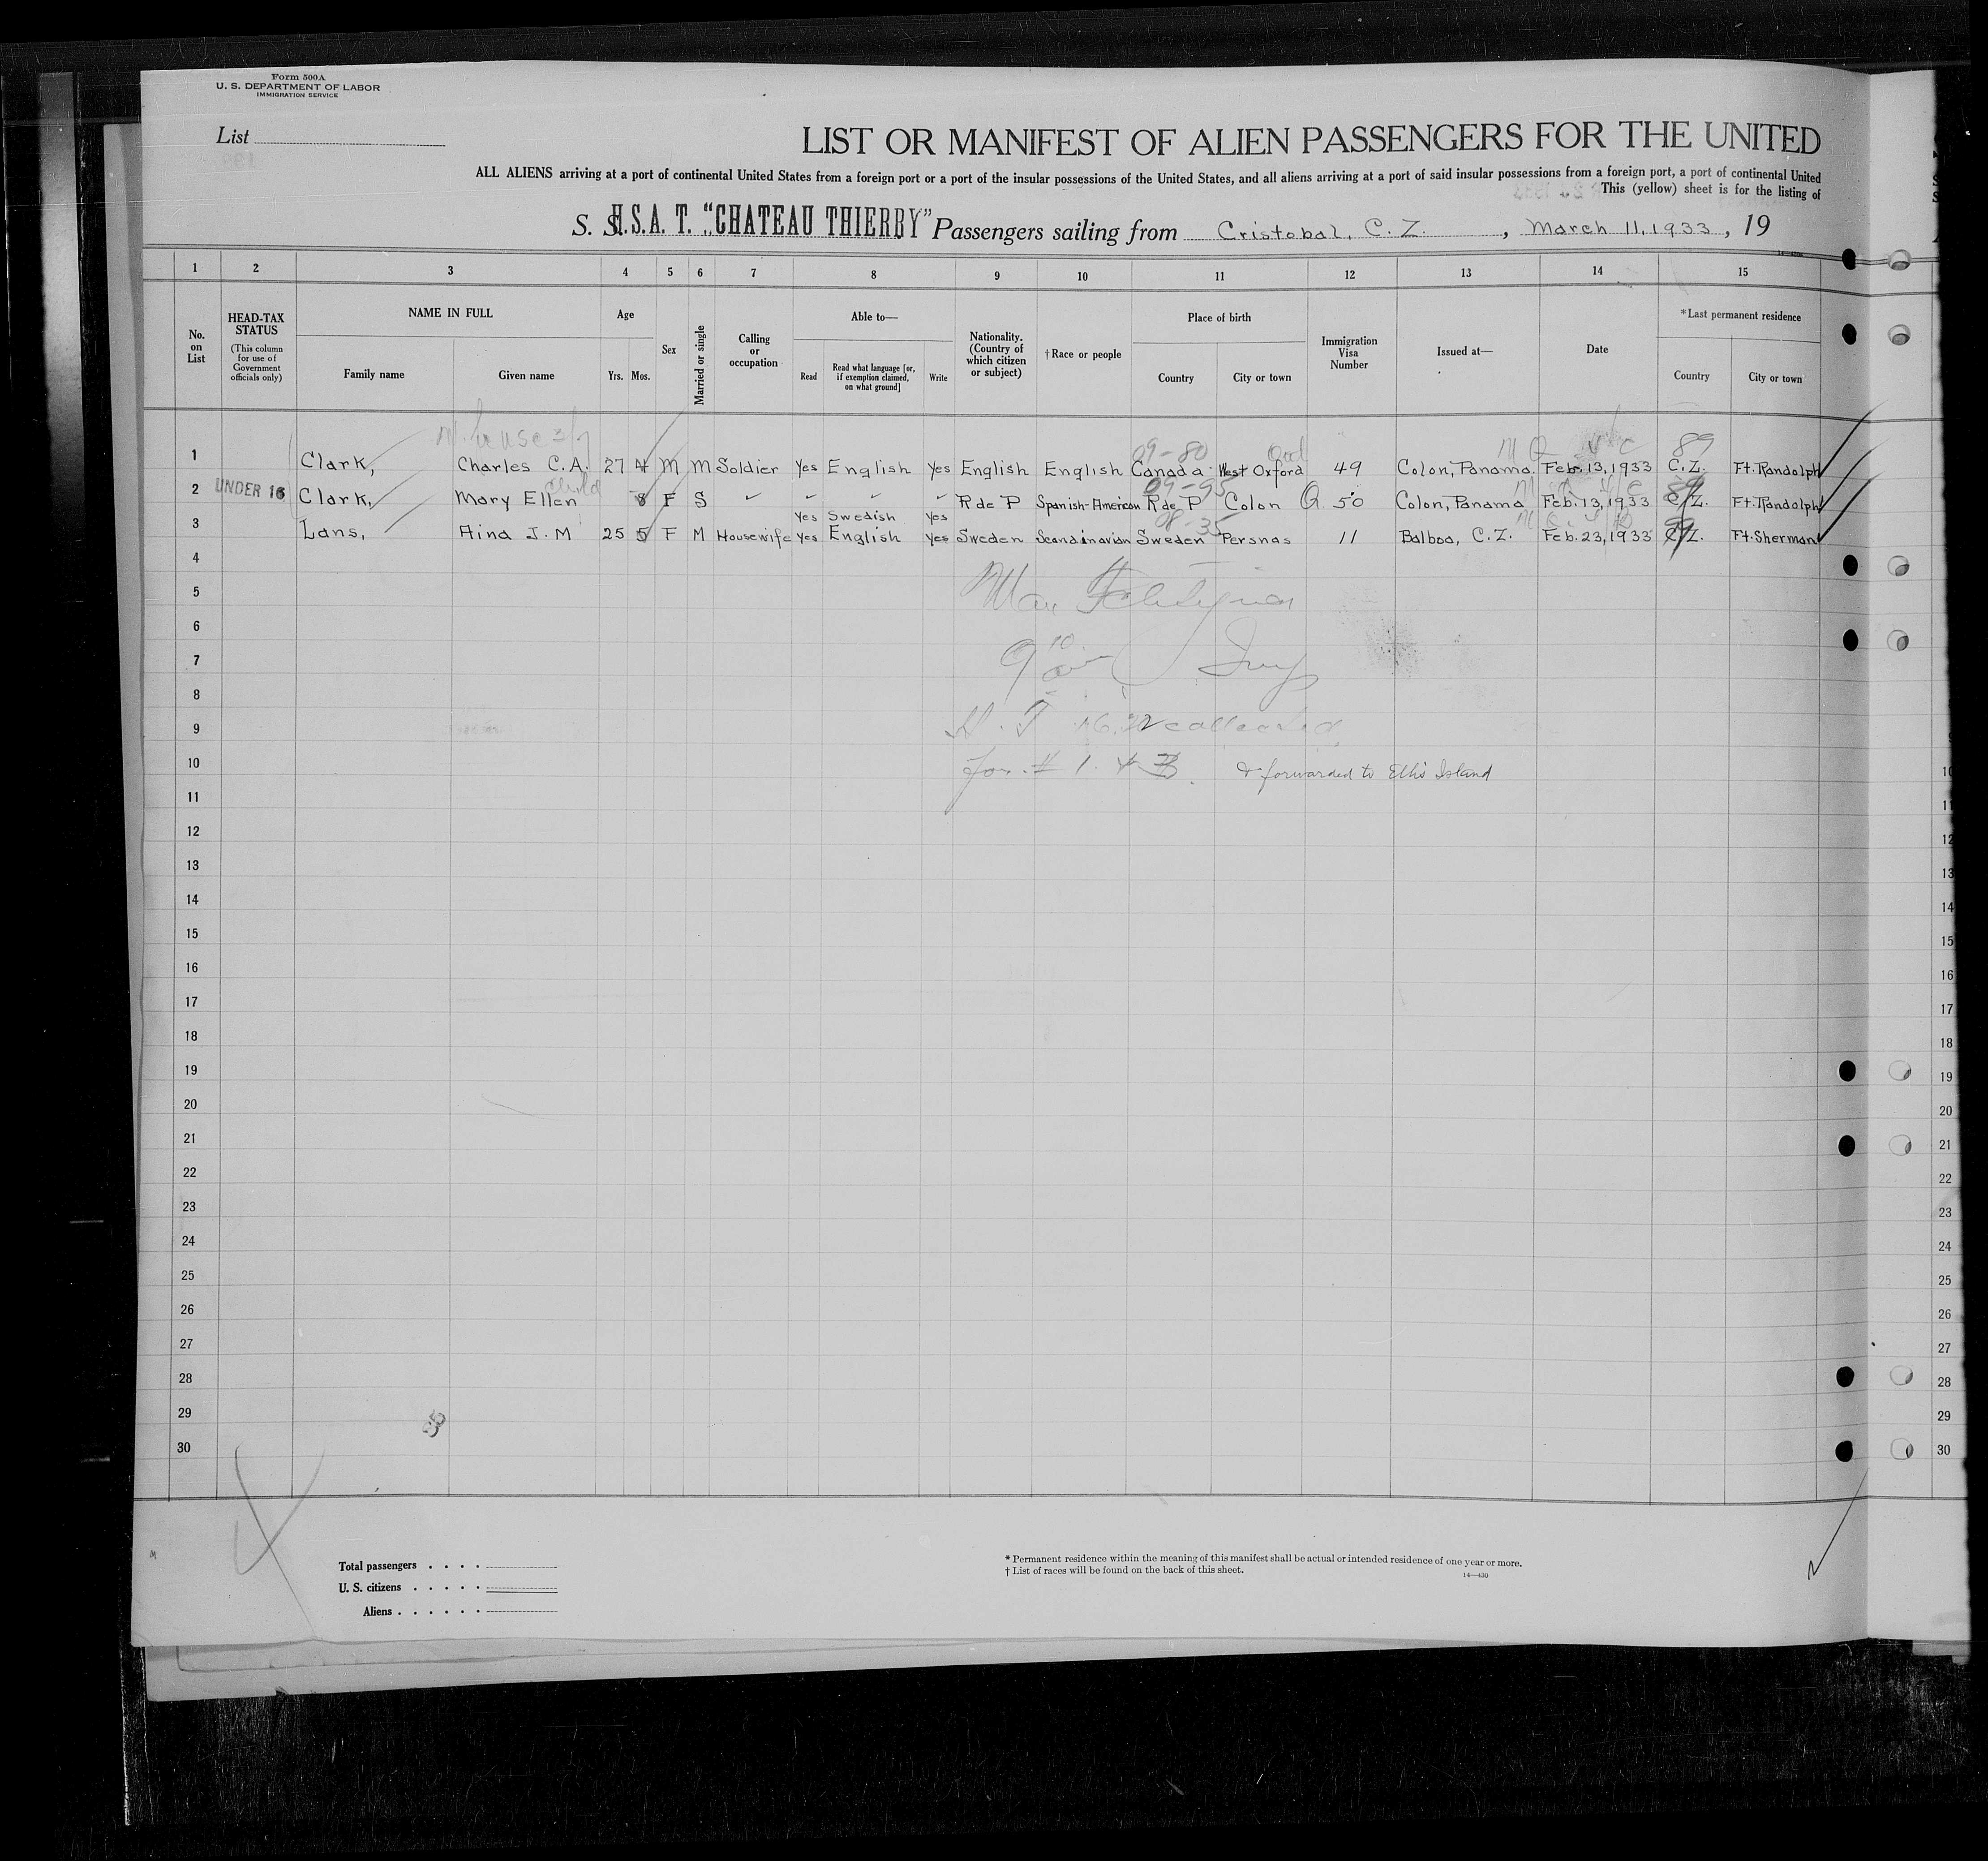 Form 500A
U. S. DEPARTMENT OF LABOR
IMMIGRATION SERVICE
List
LIST OR MANIFEST OF ALIEN PASSENGERS FOR THE UNITED
ALL ALIENS arriving at a port of continental United States from a foreign port or a port of the insular possessions of the United States, and all aliens arriving at a port of said insular possessions from a foreign port, a port of continental United
This (yellow) sheet is for the listing of
S. S. U.S.A.T. "CHATEAU THIERRY" Passengers sailing from Cristobal, C. Z. , March 11, 1933 , 19
1 2 3 4 5 6 7 8 9 10 11 12 13 14 15
No. on List
HEAD-TAX STATUS
(This column for use of Government officials only)
NAME IN FULL
Family name Given name
Age
Yrs. Mos.
Sex
Married or single
Calling or occupation
Able to—
Read
Read what language [or, if exemption claimed, on what ground]
Write
Nationality. (Country of which citizen or subject)
†Race or people
Place of birth
Country City or town
Immigration Visa Number
Issued at—
Date
*Last permanent residence
Country City or town
09-80 89
1 Clark, Charles C.A. 27 4 M M Soldier Yes English Yes English English Canada West Oxford 49 Colon, Panama. Feb. 13, 1933 C.Z. Ft. Randolph
child 09-95
2 UNDER 16 Clark, Mary Ellen 8 F S R de P Spanish-American R de P Colon Q 50 Colon, Panama Feb. 13, 1933 C.Z. Ft. Randolph
Yes Swedish Yes 08-35
3 Lans, Aina J. M 25 5 F M Housewife Yes English Yes Sweden Scandinavian Sweden Persnas 11 Balboa, C.Z. Feb. 23, 1933 C.Z. Ft. Sherman
4
5
6
7
8
9 collected
10 for # 1 & 3. & forwarded to Ellis Island
11
12
13
14
15
16
17
18
19
20
21
22
23
24
25
26
27
28
29
30
10
11
12
13
14
15
16
17
18
19
20
21
22
23
24
25
26
27
28
29
30
Total passengers
U. S. citizens
Aliens
* Permanent residence within the meaning of this manifest shall be actual or intended residence of one year or more.
† List of races will be found on the back of this sheet.
14—430